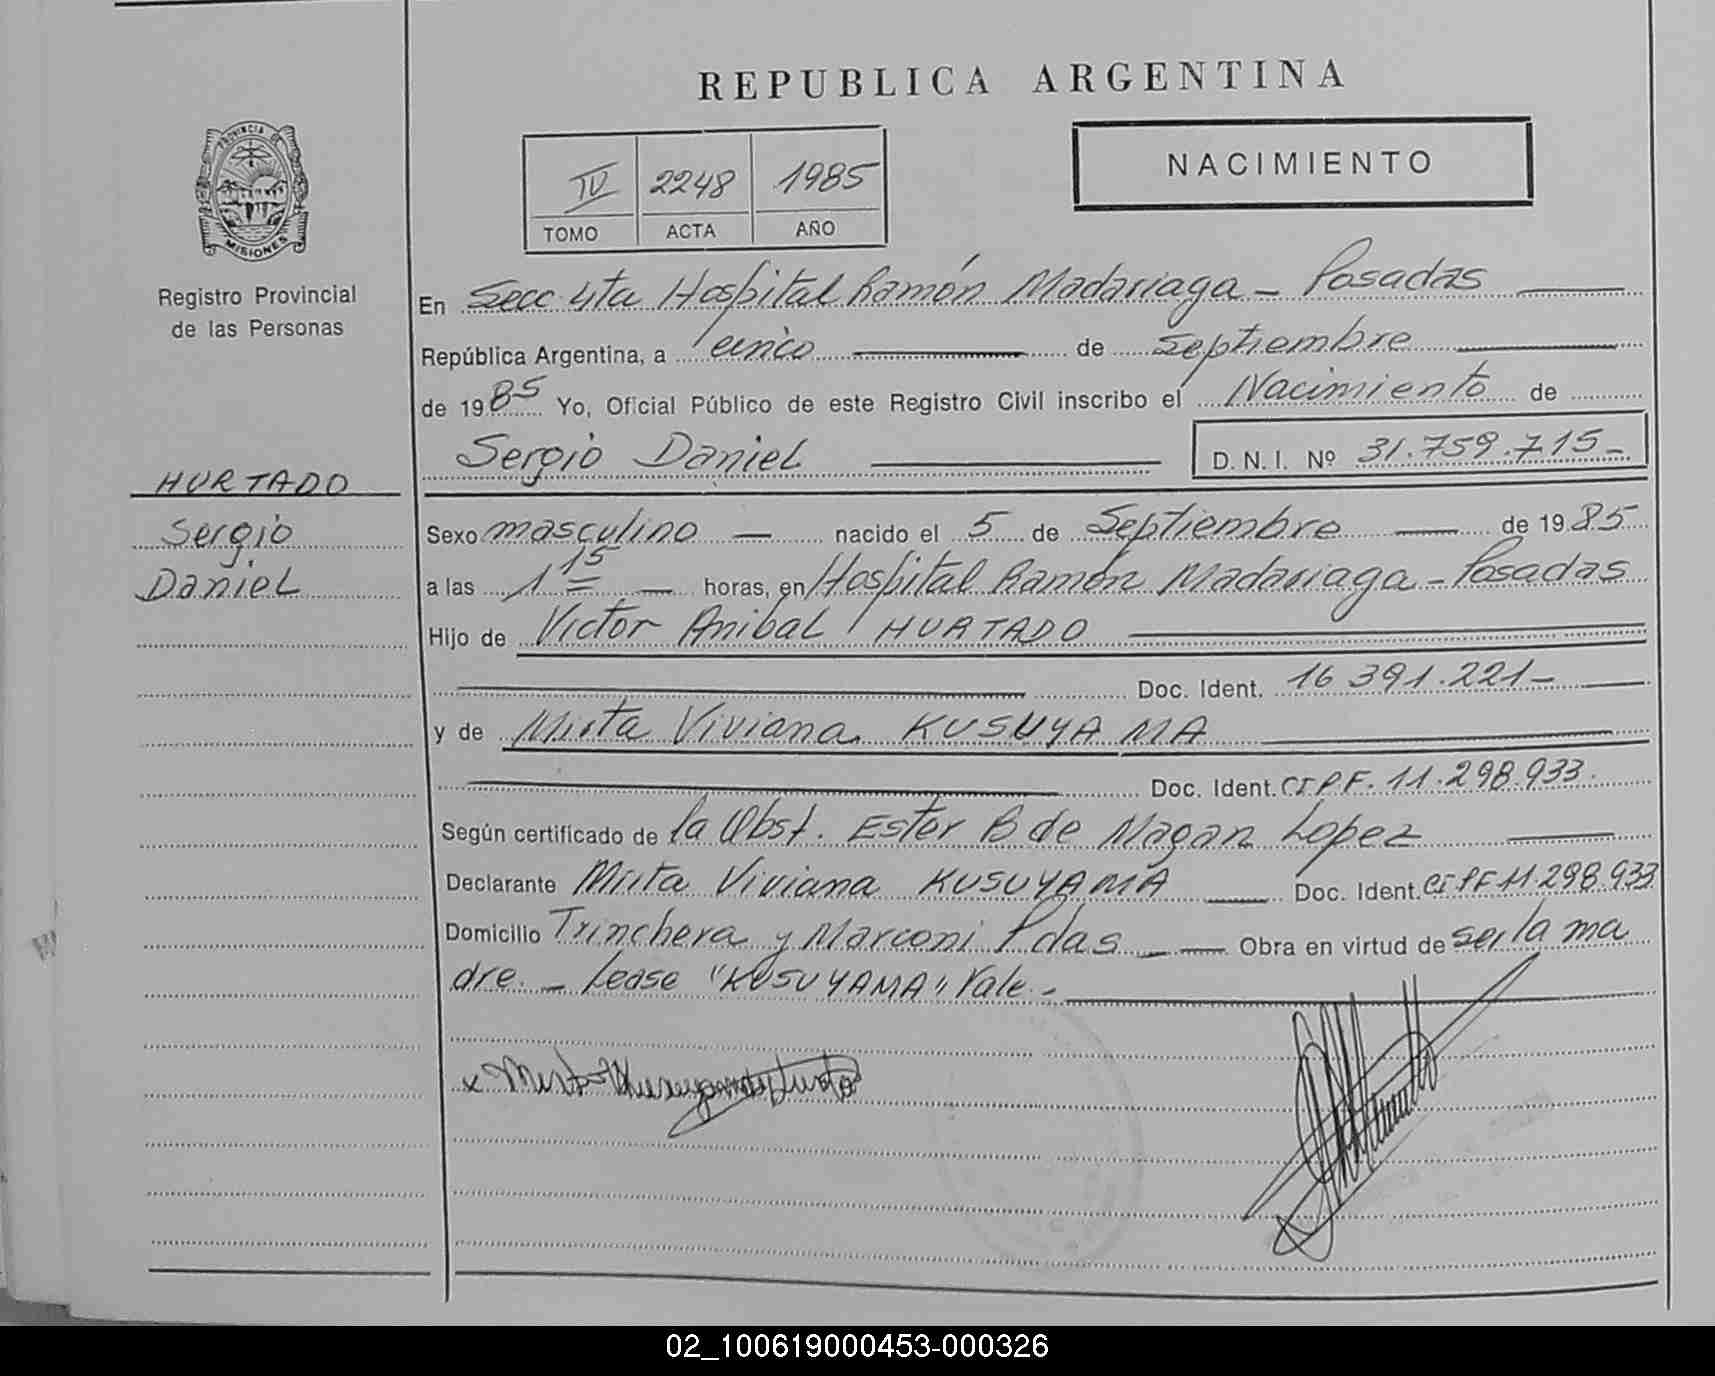 REPUBLICA ARGENTINA
PROVINCIA DE
MISIONES
Registro Provincial
de las Personas
IV 2248 1985
TOMO ACTA AÑO
NACIMIENTO
En Secc 4ta Hospital Ramón Madariaga - Posadas
República Argentina, a cinco de Septiembre
de 1985 Yo, Oficial Público de este Registro Civil inscribo el Nacimiento de
Sergio Daniel D. N. I. Nº 31.759.715-
HURTADO
Sergio
Daniel
Sexo masculino nacido el 5 de Septiembre de 1985
a las 1 15 horas, en Hospital Ramón Madariaga - Posadas
Hijo de Victor Anibal HURTADO
Doc. Ident. 16 391.221-
y de Mirta Viviana KUSUYAMA
Doc. Ident. CIPF. 11.298.933.
Según certificado de la Obst. Ester B de Magan Lopez
Declarante Mirta Viviana KUSUYAMA Doc. Ident. CIPF 11.298.933
Domicilio Trinchera y Marconi Pdas Obra en virtud de ser la ma
dre. - Lease "KUSUYAMA" Vale -
02_100619000453-000326